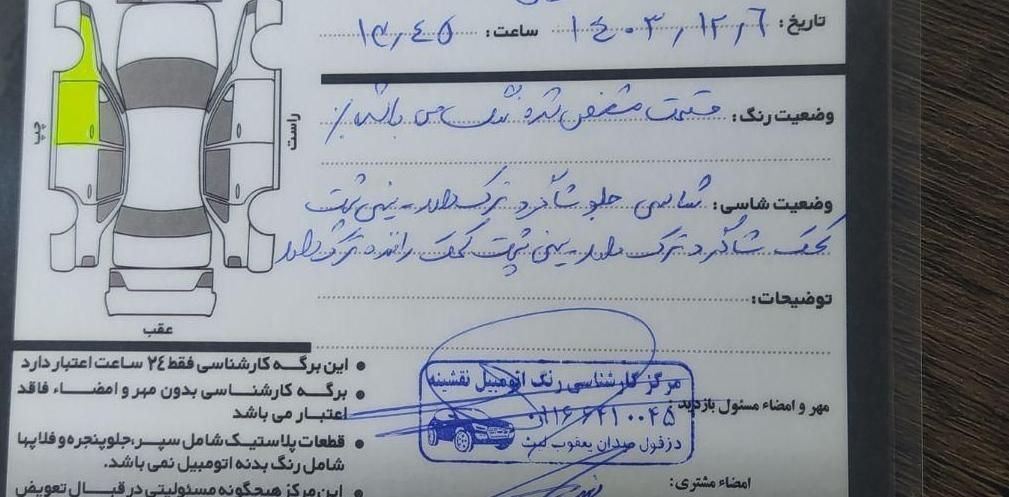 تاریخ: ۱۴۰۳/۱۲/۶ ساعت: ۱۳/۴۵
وضعیت رنگ: قسمت مشخص شده رنگ می باشد
وضعیت شاسی: شاسی جلو شاگرد ترک دارد - سینی پشت
کمک شاگرد ترک دارد - سینی پشت کمک راننده ترک دارد
توضیحات:
چپ
راست
عقب
این برگه کارشناسی فقط ۲٤ ساعت اعتبار دارد
برگه کارشناسی بدون مهر و امضاء فاقد
اعتبار می باشد
قطعات پلاستیک شامل سپر، جلوپنجره و فلاپها
شامل رنگ بدنه اتومبیل نمی باشد.
این مرکز هیچگونه مسئولیتی در قبال تعویض
مهر و امضاء مسئول بازدید:
مرکز کارشناسی رنگ اتومبیل نقشینه
دزفول میدان یعقوب لیث
امضاء مشتری: